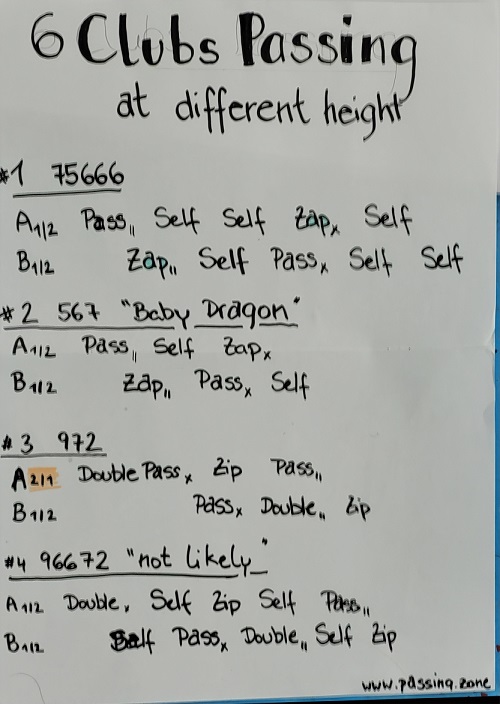 6 Clubs Passing
at different height
#1 75666
A1/2 Pass11 Self Self Zapx Self
B1/2 Zap11 Self Passx Self Self
#2 567 "Baby Dragon"
A1/2 Pass11 Self Zapx
B1/2 Zap11 Passx Self
#3 972
A2/1 Double Passx Zip Pass11
B1/2 Passx Double11 Zip
#4 96672 "not likely"
A1/2 Doublex Self Zip Self Pass11
B1/2 Self Passx Double11 Self Zip
www.passing.zone